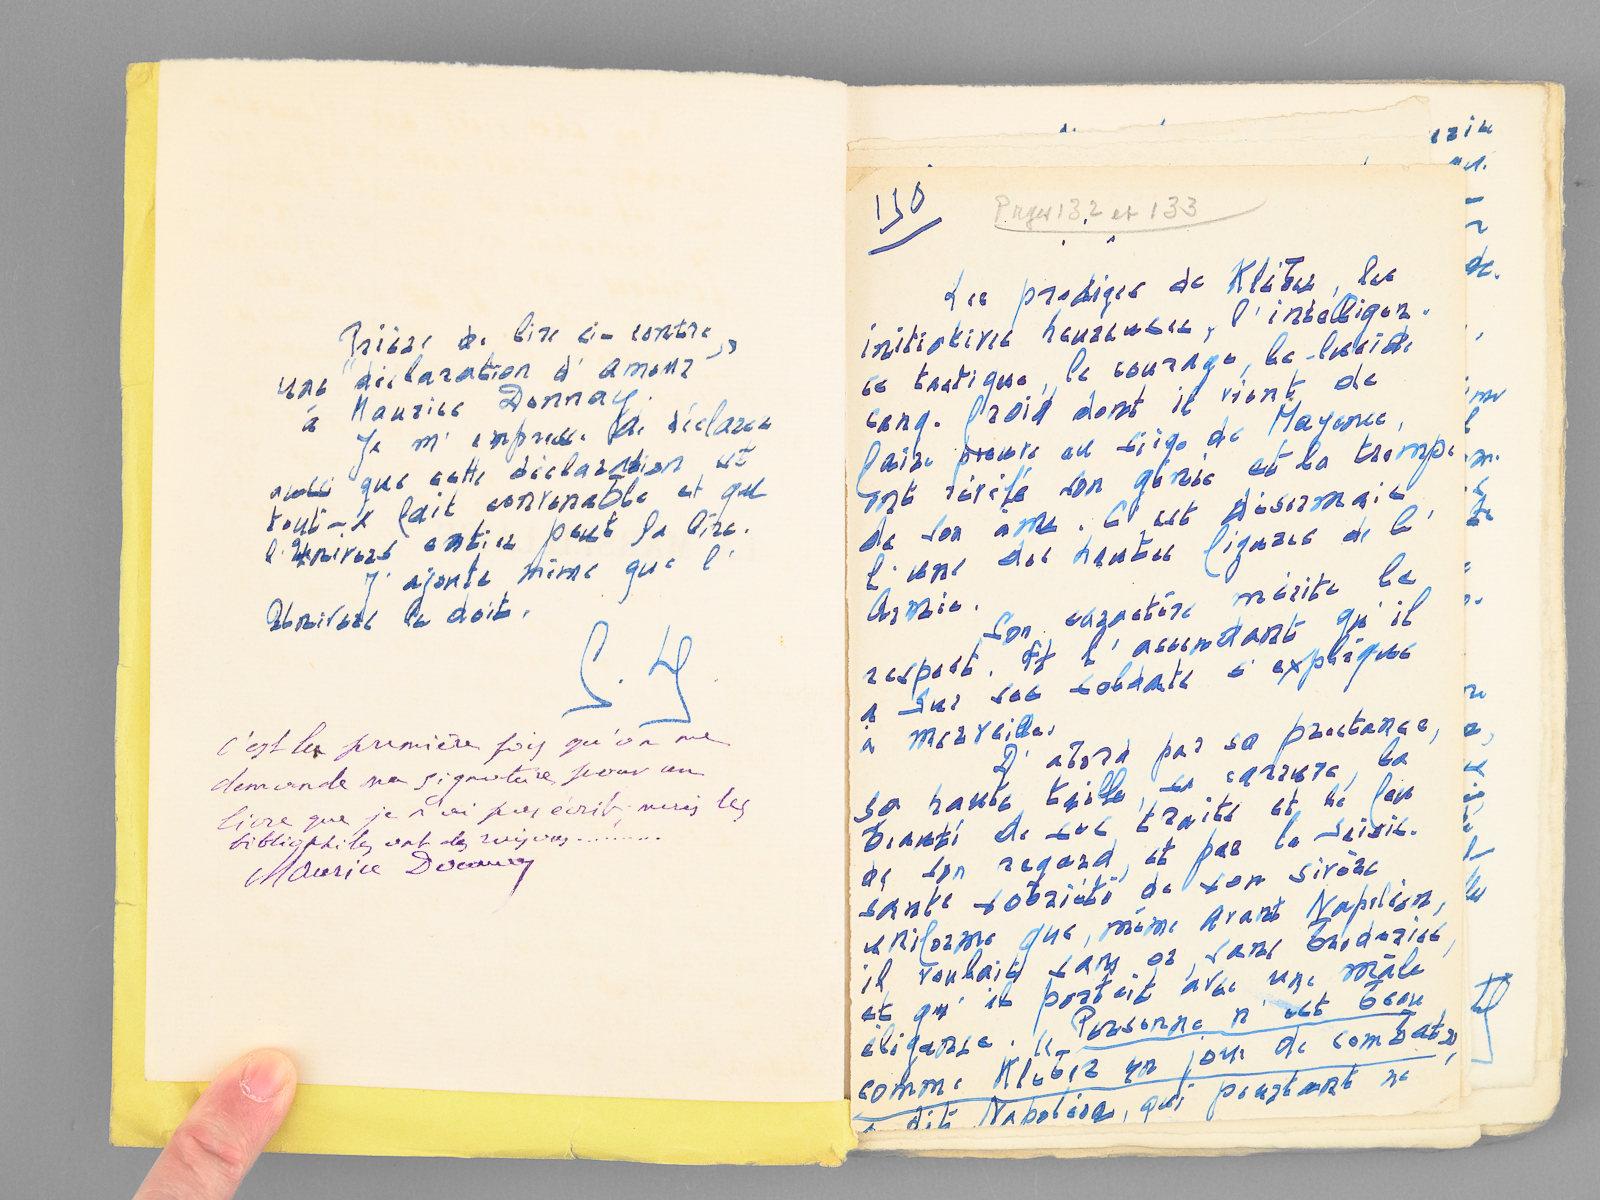 Prière de lire ci-contre,
une "déclaration d'amour"
à Maurice Donnay.
Je m'empresse de déclarer
aussi que cette déclaration est
tout-à fait convenable et que
l'Univers entier peut la lire.
J'ajoute même que l'
Univers le doit.
c'est la première fois qu'on me
demande ma signature pour un
livre que je n'ai pas écrit; mais les
bibliophiles ont des raisons..........
Maurice Donnay
130
Pages 132 et 133
Les prodiges de Kléber, les
initiatives heureuses, l'intelligen-
ce tactique, le courage, le lucide
sang-froid dont il vient de
faire preuve au siège de Mayence,
ont révélé son génie et la trempe
de son âme. C'est désormais
l'une des hautes figures de l'
Armée.
Son caractère mérite le
respect. Et l'ascendant qu'il
a sur ses soldats s'explique
à merveille.
D'abord par sa prestance,
sa haute taille, sa carrure, la
beauté de ses traits et le feu
de son regard, et par la saisis-
sante sobriété de son sévère
uniforme que, même avant Napoléon,
il voulait sans or, sans broderies,
et qu'il portait avec une mâle
élégance. "Personne n'est beau
comme Kléber un jour de combat",
a dit Napoléon, qui pourtant ne